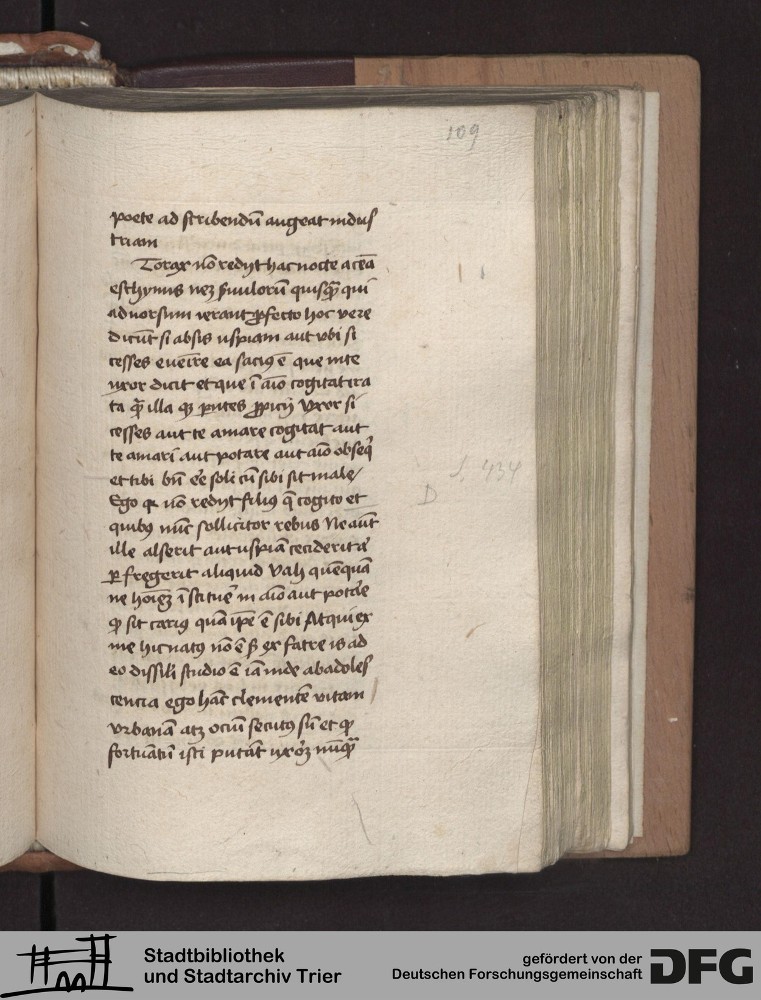 109
poete ad scribendū augeat indus
triam
Torax nō redyt hac nocte a cēa
eschynus neqz s̄uulorū quisq̄ qui
aduorsum ierant profecto hoc vere
dicūt si absis uspiam aut vbi si
cesses eueīre ea saciꝰ ē que in te
uxor dicit et que ī aīo cogitat ira
ta q̄ illa qz pntes propicij Vxor si
cesses aut te amare cogitat aut
te amari aut potare aut aīo obseq̄
et tibi bn̄ eē soli cū sibi sit male
Ego qꝛ nō redyt filiꝰ q̄ cogito et
quibꝰ nūc sollicitor rebus Ne aūt
ille alserit aut uspiā ceciderit aͭ
p̱fregerit aliquid Vah quēquā
ne hoīez ī stituē in aīo aut potāe
qͦ sit cariꝰ quā ip̄e ē sibi Atqui ex
me hic natꝰ nō ē sꝫ ex fatre is ad
eo dissili studio ē iā inde ab adoles
cencia ego hāc clementē vitam
vrbanā atz ociū secutꝰ sū et qͦ
fortūatū isti putāt uxoꝛz nūq̄
D
J. 434
Stadtbibliothek
und Stadtarchiv Trier
gefördert von der
Deutschen Forschungsgemeinschaft
DFG